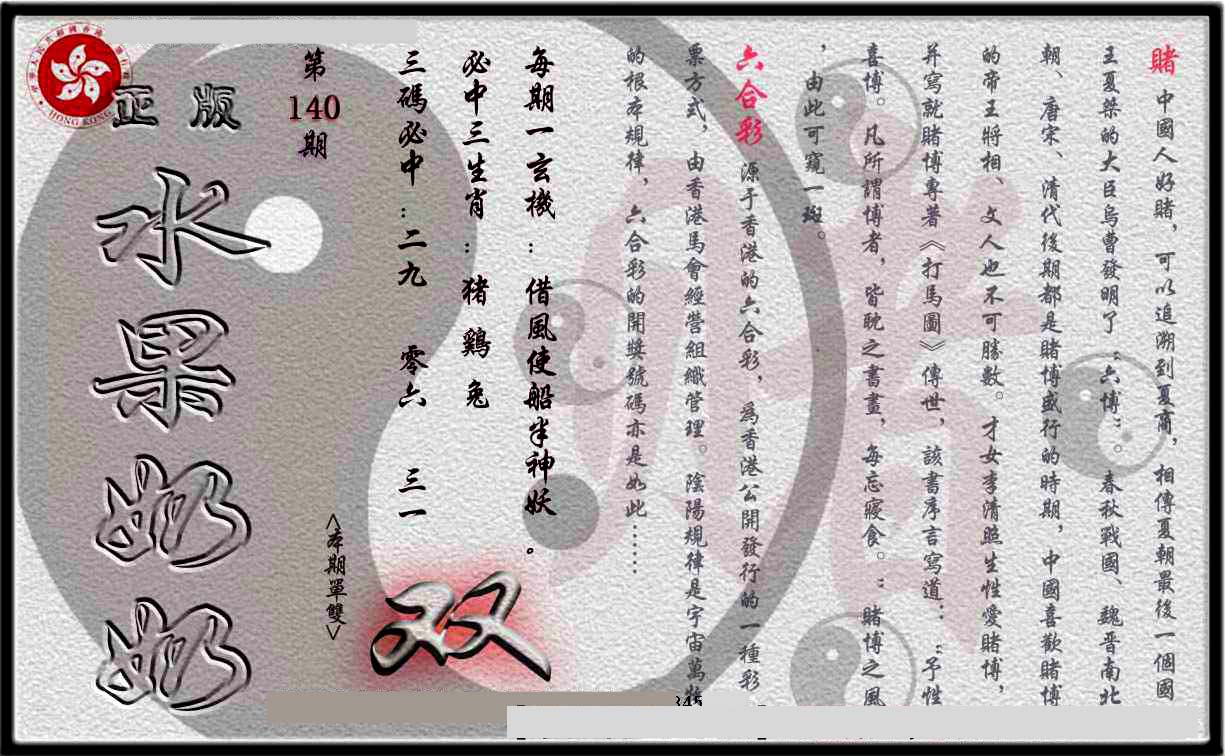 賭 中國人好賭，可以追溯到夏商，相傳夏朝最後一個國
王夏桀的大臣烏曹發明了“六博”。春秋戰國、魏晋南北
朝、唐宋、清代後期都是賭博盛行的時期，中國喜歡賭博
的帝王將相、文人也不可勝數。才女李清照生性愛賭博，
并寫就賭博專著《打馬圖》傳世，該書序言寫道：“予性
喜博。凡所謂博者，皆耽之書畫，每忘寢食。”賭博之風
，由此可窺一斑。
六合彩 源于香港的六合彩，爲香港公開發行的一種彩
票方式，由香港馬會經營組織管理。陰陽規律是宇宙萬物
的根本規律，六合彩的開獎號碼亦是如此……
每期一玄機：借風使船半神妖。
必中三生肖：猪 鷄 兔
三碼必中：二九 零六 三一
双
<本期單雙>
第140期
正版
水果奶奶
HONG KONG